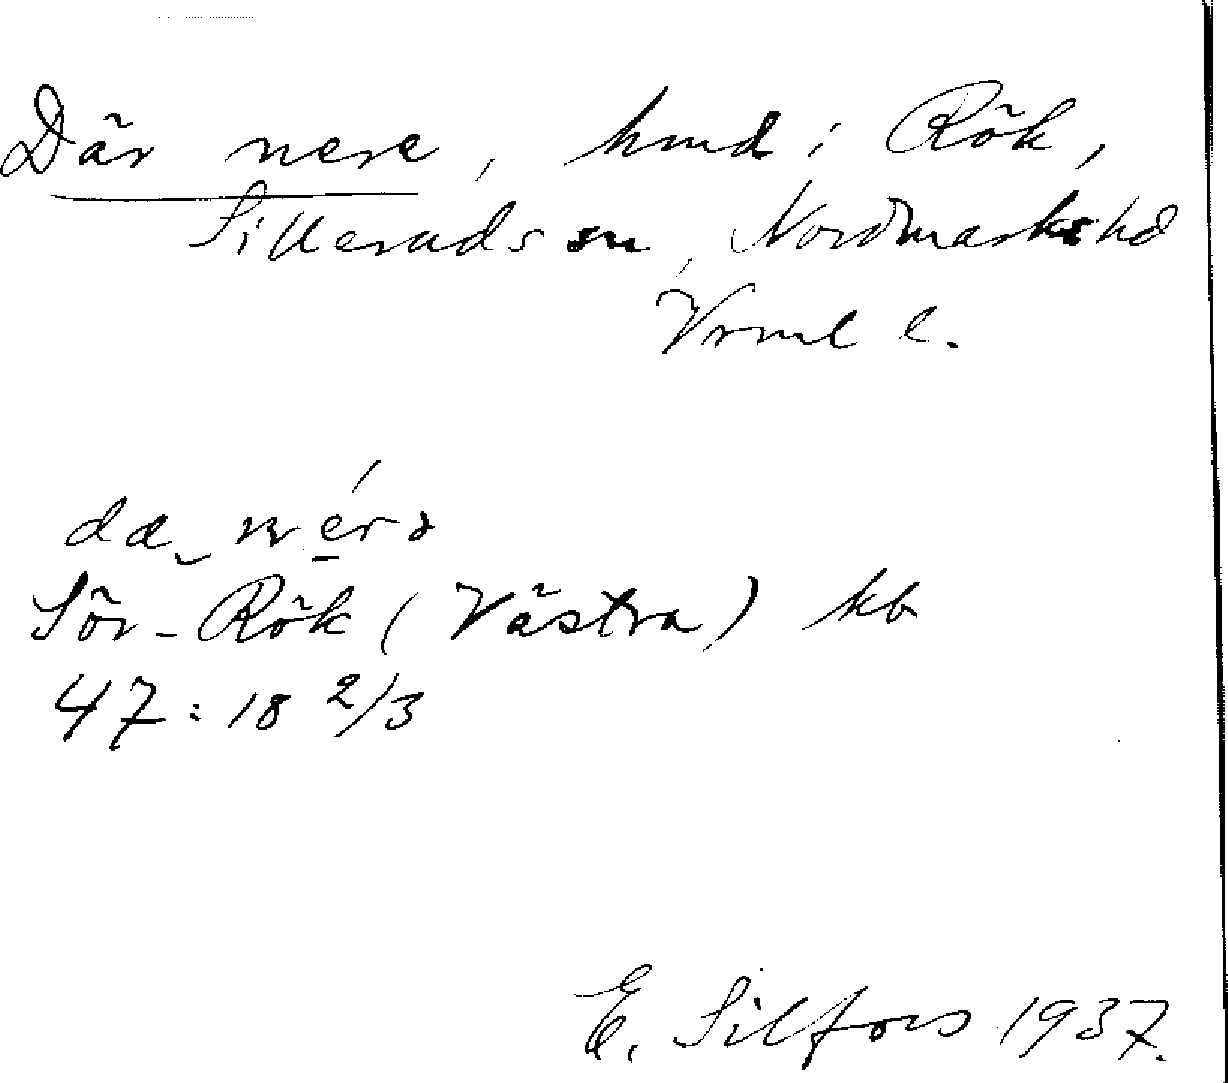 Där nere, hmd i Rök,
Silleruds sn, Nordmarks hd
Vrml l.
dæ nérə
Sör-Rök (Västra) kb
47:18 2/3
E. Silfors 1937.